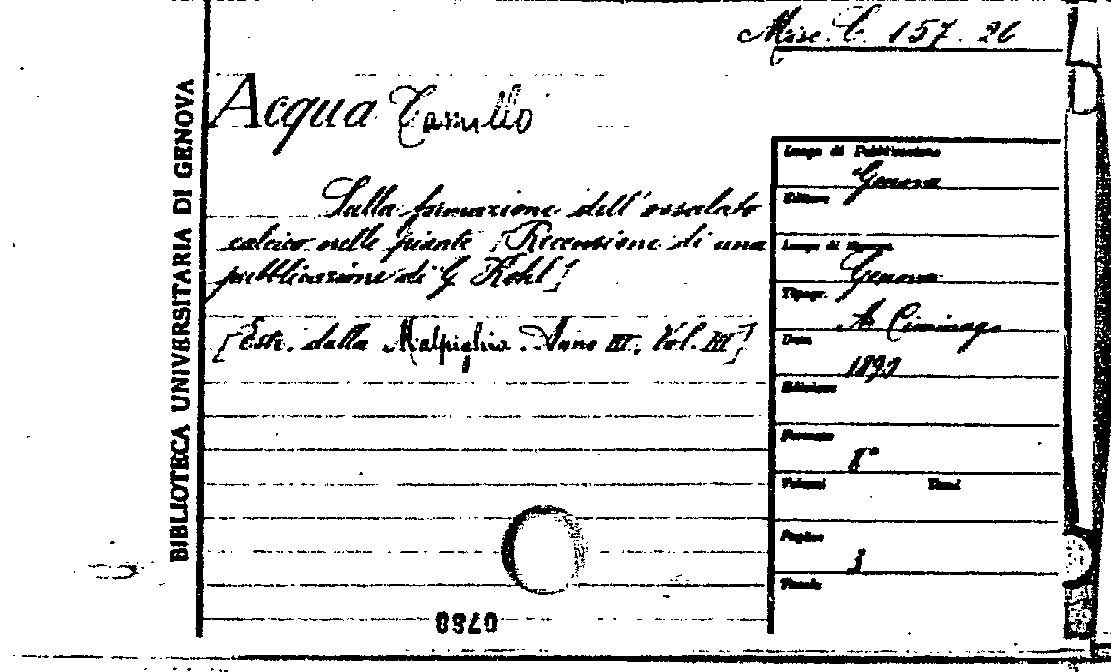 Misc. C. 157. 26
BIBLIOTECA UNIVERSITARIA DI GENOVA
Acqua Camillo
Sulla formazione dell'ossalato
calcico nelle piante [Recensione di una
pubblicazione di G. Kohl]
[Estr. dalla Malpighia. Anno III, Vol. III]
Luogo di Pubblicazione
Genova
Editore
Luogo di Stampa
Genova
Tipogr.
A. Ciminago
Data
Edizione
Formato
8°
Volumi Tomi
Pagine
3
Tavole
0780